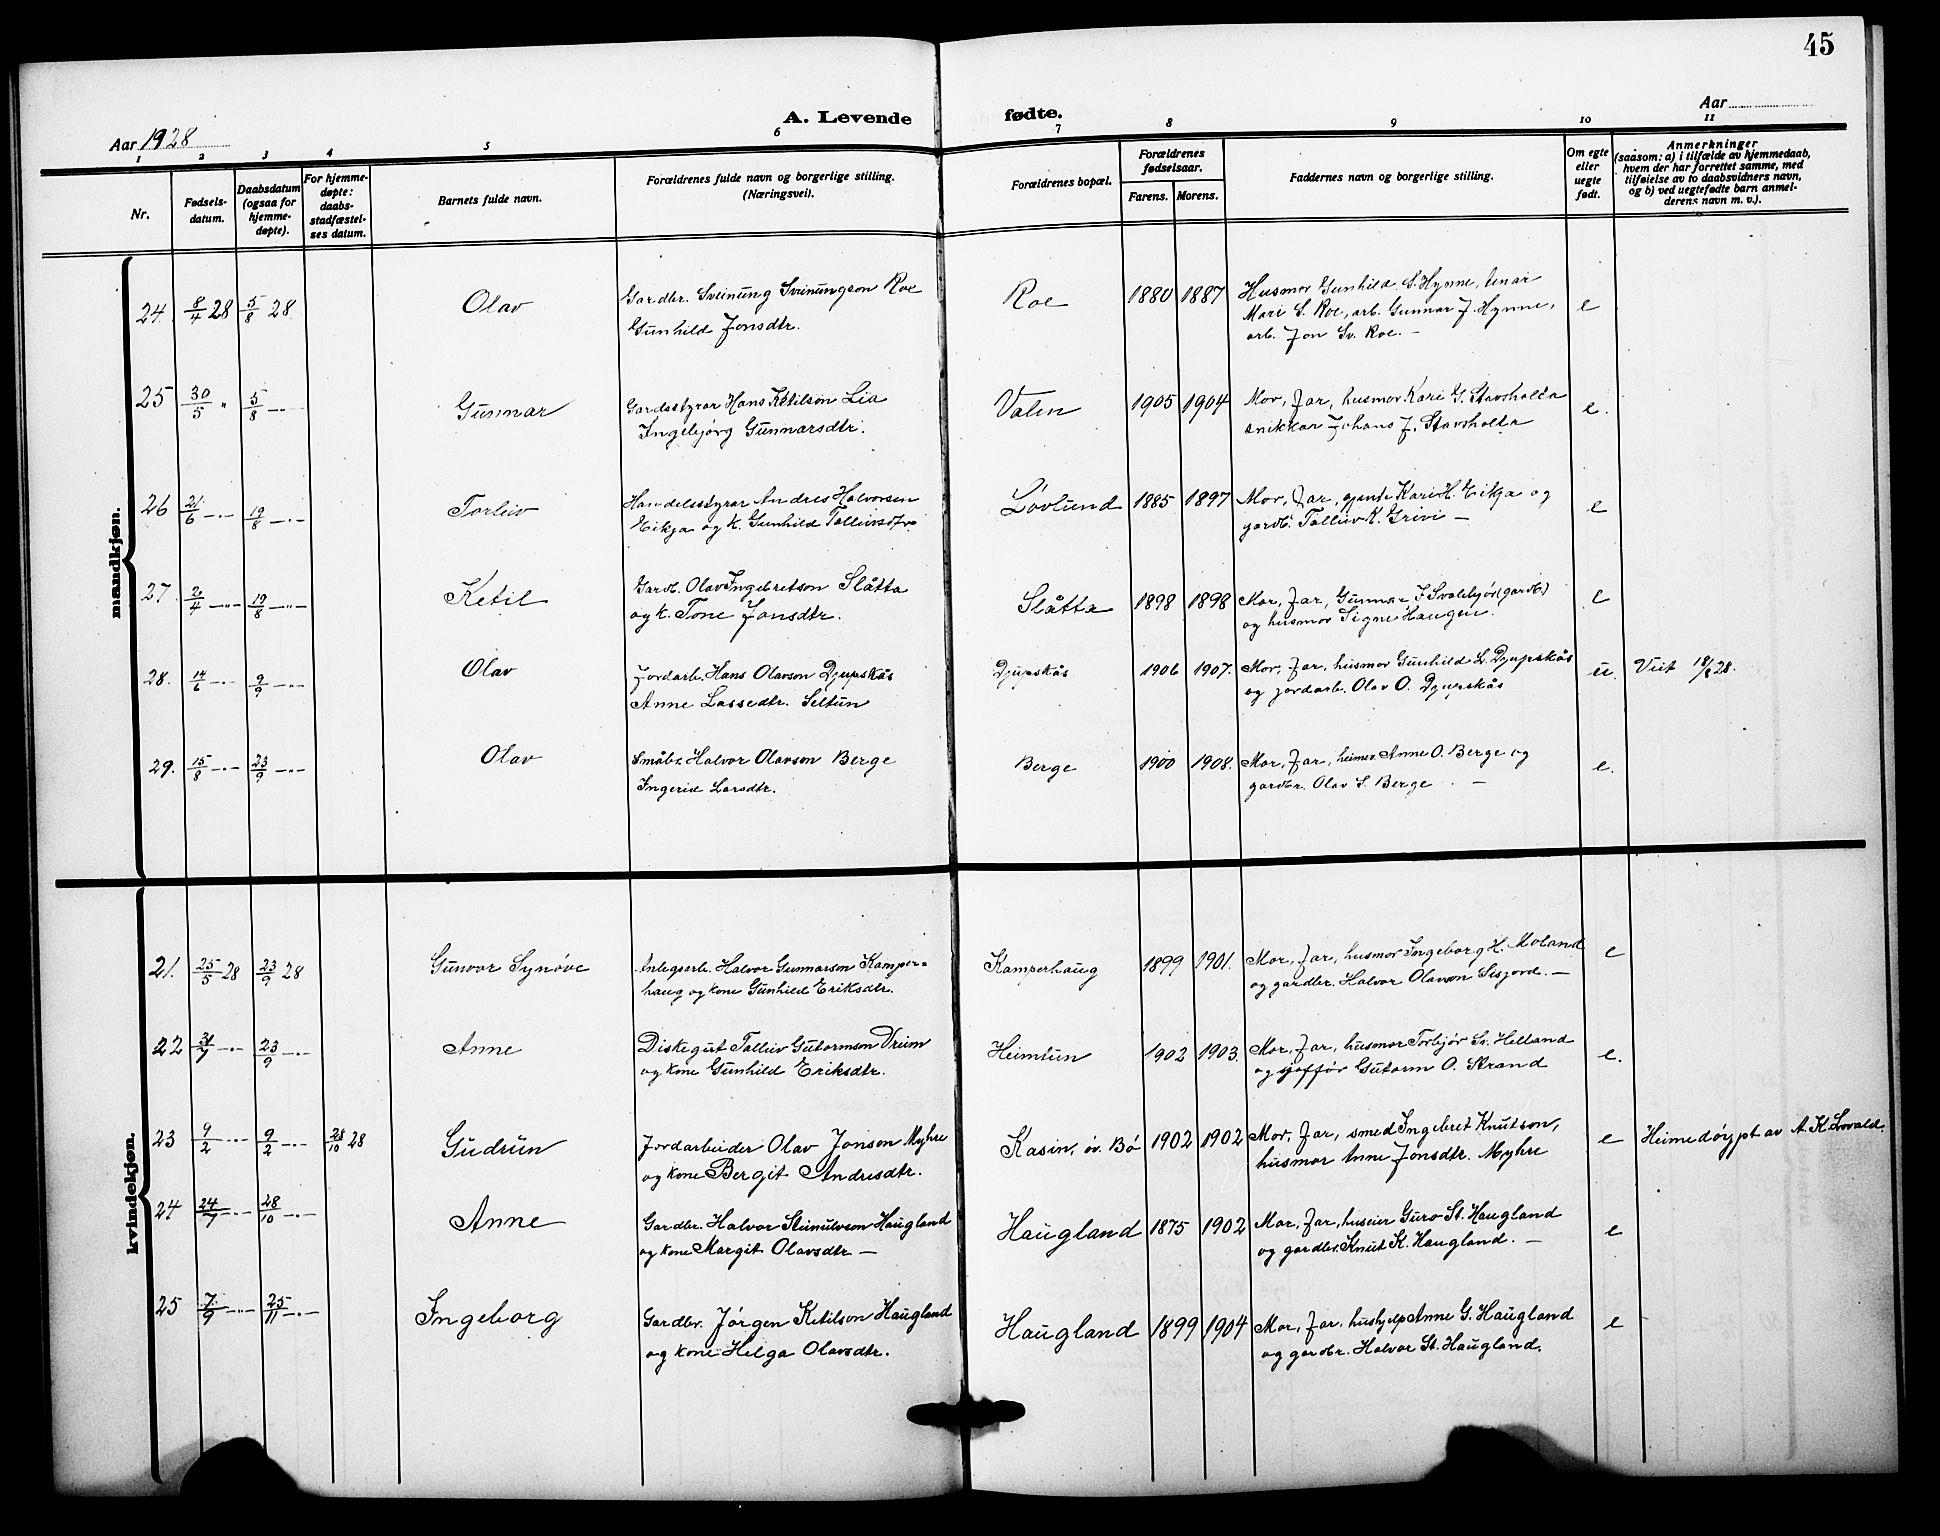 45
Aar 1928
A. Levende fødte.
Aar
1 2 3 4 5 6 7 8 9 10 11
Nr.
Fødsels-
datum.
Daabsdatum
(ogsaa for
hjemme-
døpte).
For hjemme-
døpte:
daabs-
stadfæstel-
ses datum.
Barnets fulde navn.
Forældrenes fulde navn og borgerlige stilling.
(Næringsvei).
Forældrenes bopæl.
Forældrenes
fødselsaar.
Farens. Morens.
Faddernes navn og borgerlige stilling.
Om egte
eller
uegte
født.
Anmerkninger
(saasom: a) i tilfælde av hjemmedaab,
hvem der har forrettet samme, med
tilføielse av to daabsvidners navn,
og b) ved uegtefødte barn anmel-
derens navn m. v.).
mandkjøn.
24. 8/4 28 5/8 28. Olav Gardbr. Sveinung Sveinungson Roe Roe 1880 1887 Husmor Gunhild S. Hynne, tenar
Gunhild Jonsdtr. Mari S. Roe, arb. Gunnar J. Hynne, e
arb. Jon Sv. Roe. –
25 30/5 " 5/8 –"– Gunnar Gardsstyrar Hans Ketilson Lia Valen 1905 1904 Mor, Far, husmor Kari G. Stavsholta e.
Ingebjørg Gunnarsdtr. snikkar Johans J. Stavsholta
26 21/6 –"– 19/8 –"– Torleiv Handelsstyrar Andres Halvorsen Løvlund 1885 1897 Mor, Far, gjente Kari H. Eikja og e
Eikja og k. Gunhild Tolleivsdtr. gardb. Tolleiv K. Grivi –
27. 2/4 –"– 19/8 –"– Ketil Gardb. Olav Ingebretson Slåtta Slåtta 1898 1898 Mor, Far, Gunnar J. Svalebjør (gardb) e
og k. Tone Jonsdtr. og husmor Signe Haugen.
28. 14/6 –"– 9/9 –"– Olav Jordarb. Hans Olavson Djupskås Djupskås 1906 1907. Mor, Far, husmor Gunhild L. Djupskås u. Viet 18/8 28.
Anne Lassedtr. Seltun og jordarb. Olav O. Djupskås
29. 15/8 –"– 23/9 –"– Olav Småbr. Halvor Olavson Berge Berge 1900 1908. Mor, Far, heimev. Anne O. Berge og e.
Ingerid Larsdtr. gardbr. Olav S. Berge –
kvindekjøn.
21. 25/5 28 23/9 28 Gunvor Synøve Anlegsarb. Halvor Gunnarson Kamper= Kamperhaug 1899 1901. Mor, Far, husmor Ingeborg H. Moland e
haug og kone Gunhild Eriksdtr. og gardbr. Halvor Olavson Sisjord. –
22 31/7 –"– 23/9 –"– Anne Diskegut Tolleiv Gutormson Vrum Heimtun 1902 1903. Mor, Far, husmor Torbjør Sv. Helland e.
og kone Gunhild Eriksdtr. og sjoffør Gutorm O. Strand
23 9/2 –"– 9/2 –"– 28/10 28 Gudrun Jordarbeider Olav Jonson Myhre Kasin, øv. Bø 1902 1902 Mor, Far, smed Ingebret Knutson, e Heimedøypt av A. K. Lovald.
og kone Bergit Andresdtr. husmor Anne Jonsdtr. Myhre
24 24/7 –"– 28/10 –"– Anne Gardbr. Halvor Steinulvson Haugland Haugland 1875 1902 Mor, Far, huseier Guro St. Haugland e
og kone Margit Olavsdtr – og gardbr. Knut K. Haugland. –
25 7/9 –"– 25/11 –"– Ingeborg Gardbr. Jørgen Ketilson Haugland Haugland 1899 1904 Mor, Far, hushjelp Anne G. Haugland e
og kone Helga Olavsdtr. og gardbr. Halvor St. Haugland.